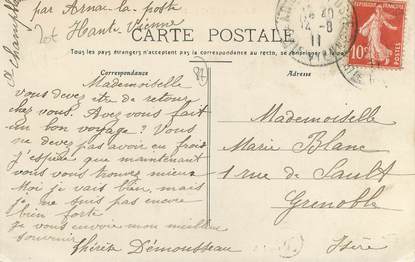 par Arnac-la-poste
Haute Vienne
CARTE POSTALE
Tous les pays étrangers n'acceptant pas la correspondance au recto, se renseigner
Correspondance
Adresse
Mademoiselle
vous devez être de retour
chez vous. Avez vous fait
un bon voyage ? Vous
ne devez pas avoir eu froid
j'espère que maintenant
vous vous trouvez mieux
Moi je vais bien, mais
je ne suis pas encore
bien forte
je vous envoie mon meilleur
souvenir
Démousseau
Mademoiselle
Marie Blanc
1 rue de Sault
Grenoble
Isère
10
11